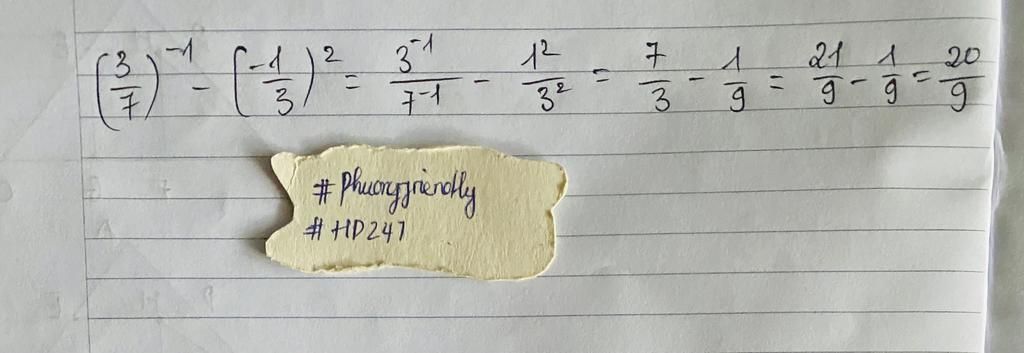 (3/7)^-1 - (-1/3)^2 = 3^-1/7^-1 - 1^2/3^2 = 7/3 - 1/9 = 21/9 - 1/9 = 20/9
# Phuongfriendly
# HD247